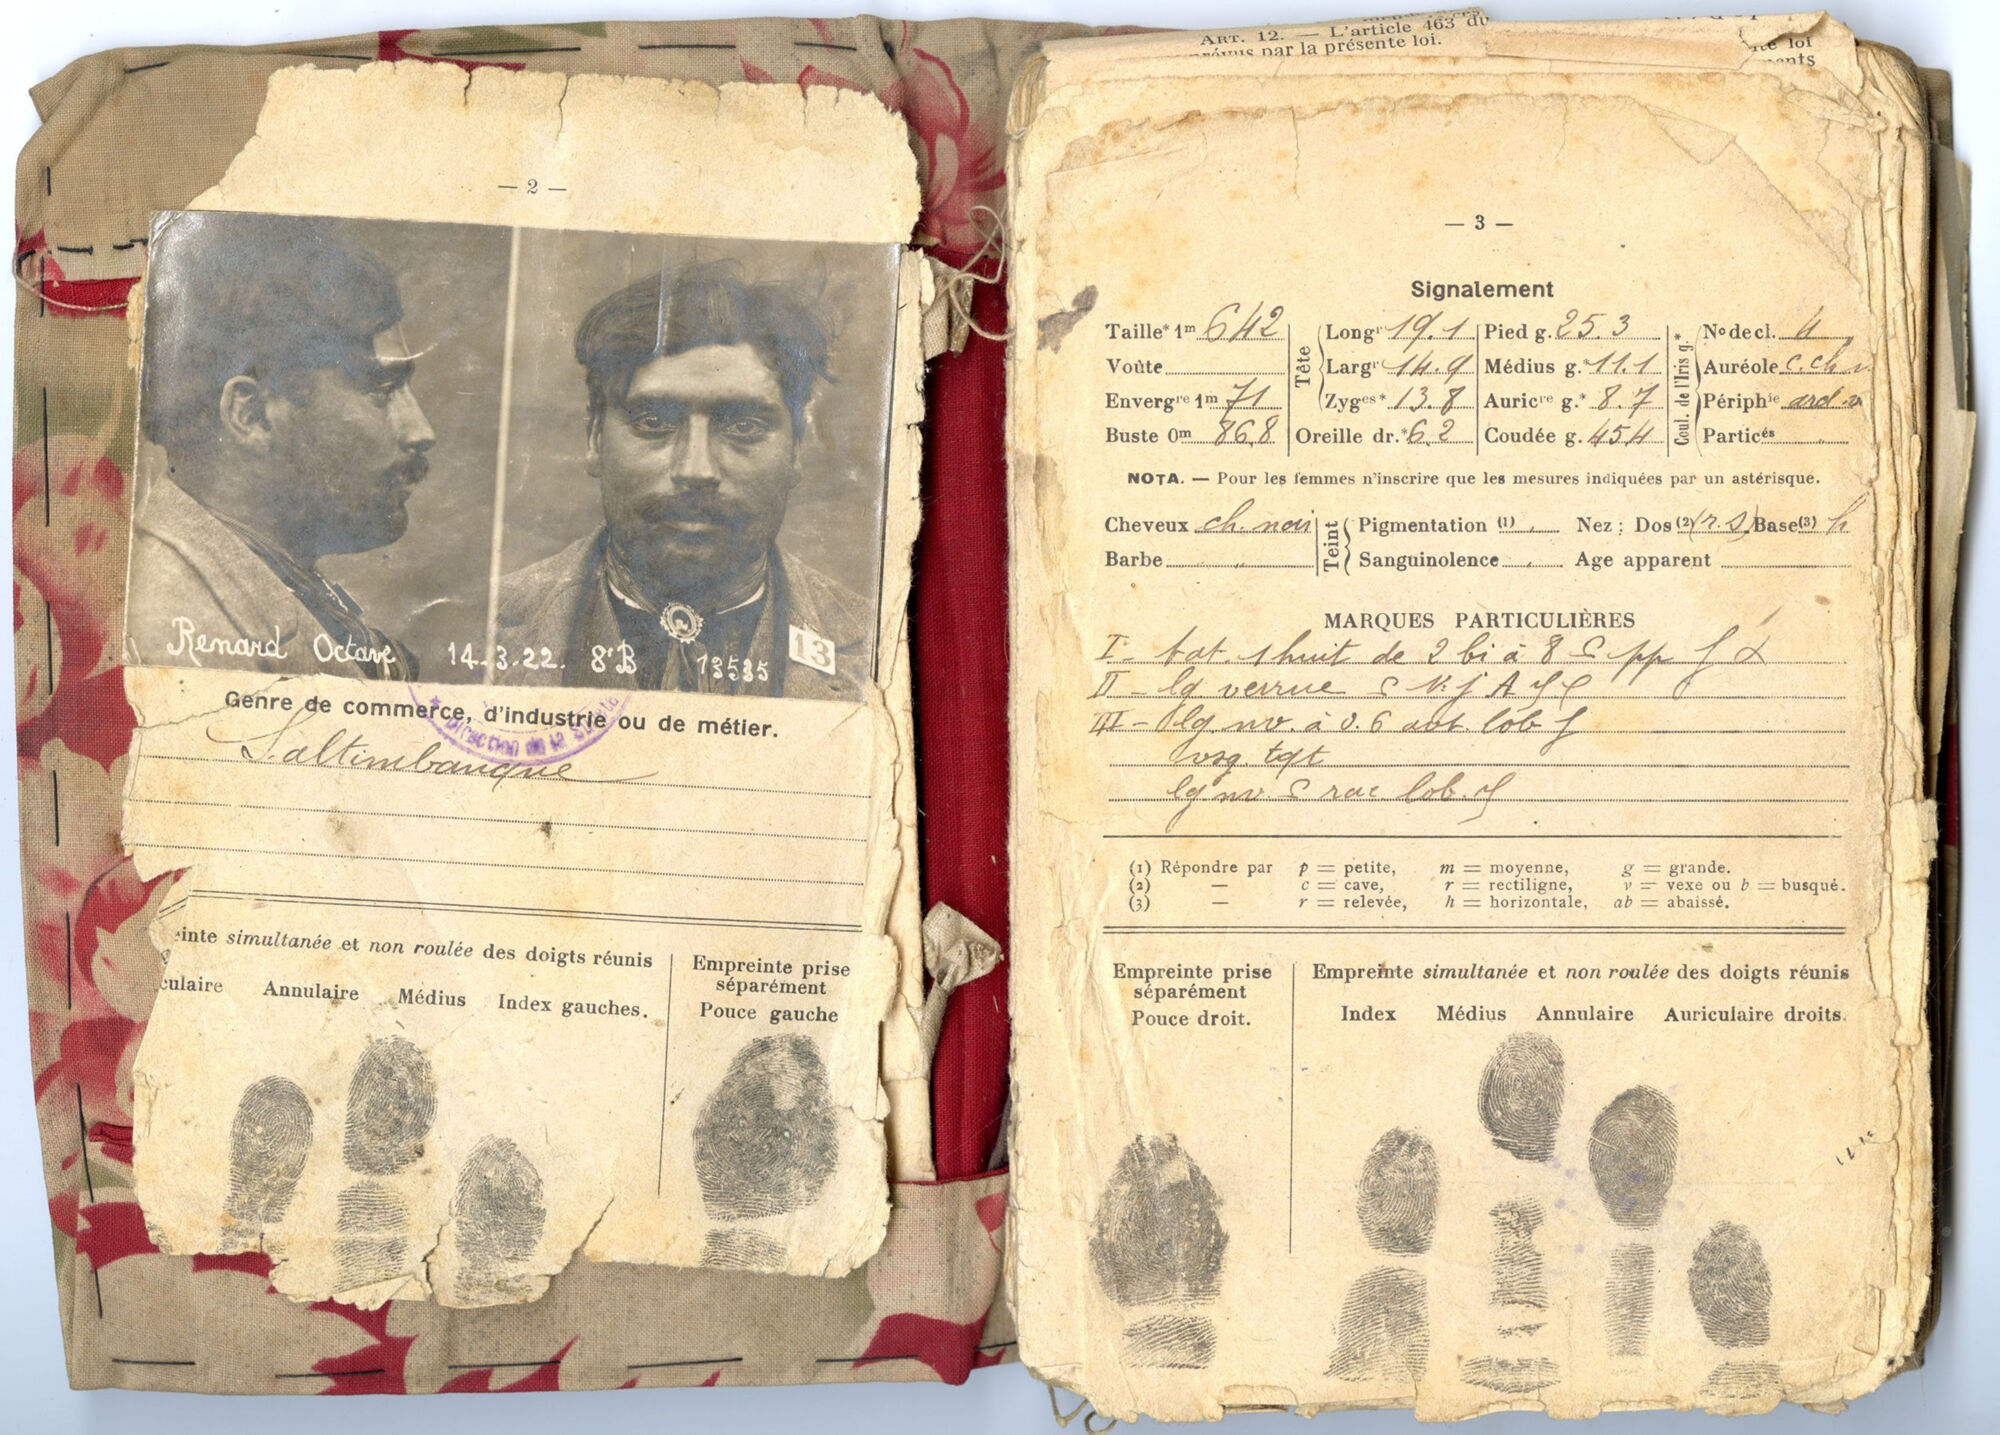 — 2 —
Renard Octave 14-3-22. 8ᵉB 13535 13
Genre de commerce, d'industrie ou de métier.
Direction de la
Saltimbanque
einte simultanée et non roulée des doigts réunis
culaire Annulaire Médius Index gauches.
Empreinte prise
séparément
Pouce gauche
ART. 12. — L'article 463 du
prévus par la présente loi.
loi
— 3 —
Signalement
Taille* 1m 642
Voûte
Envergre 1m 71
Buste 0m 86,8
Tête
Longr 19.1
Largr 14.9
Zyges* 13.8
Oreille dr.* 6.2
Pied g. 25.3
Médius g.* 11.1
Auricre g.* 8.7
Coudée g. 454
Coul. de l'Iris g.*
No de cl. 4
Auréole c. ch
Périphie ard
Particés
NOTA. — Pour les femmes n'inscrire que les mesures indiquées par un astérisque.
Cheveux ch. noi
Barbe
Teint
Pigmentation (1)
Sanguinolence
Nez : Dos (2) (r. s) Base (3) h
Age apparent
MARQUES PARTICULIÈRES
I - tat. 1 huit de 2 bi à 8
II - lg verrue
III - lg nv. à 0.6 lob
lg nv. lob.
(1) Répondre par p = petite, m = moyenne, g = grande.
(2) — c = cave, r = rectiligne, v = vexe ou b = busqué.
(3) — r = relevée, h = horizontale, ab = abaissé.
Empreinte prise
séparément
Pouce droit.
Empreinte simultanée et non roulée des doigts réunis
Index Médius Annulaire Auriculaire droits.